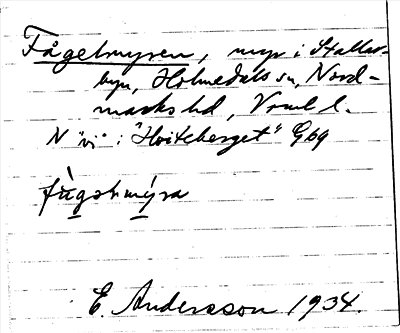 Fågelmyren, myr i Stallar-
byn, Holmedals sn, Nord-
marks hd, Vrml l.
N "vi" : "Hviteberget" Gbg
fùgəl₍mýra
E. Andersson 1934.